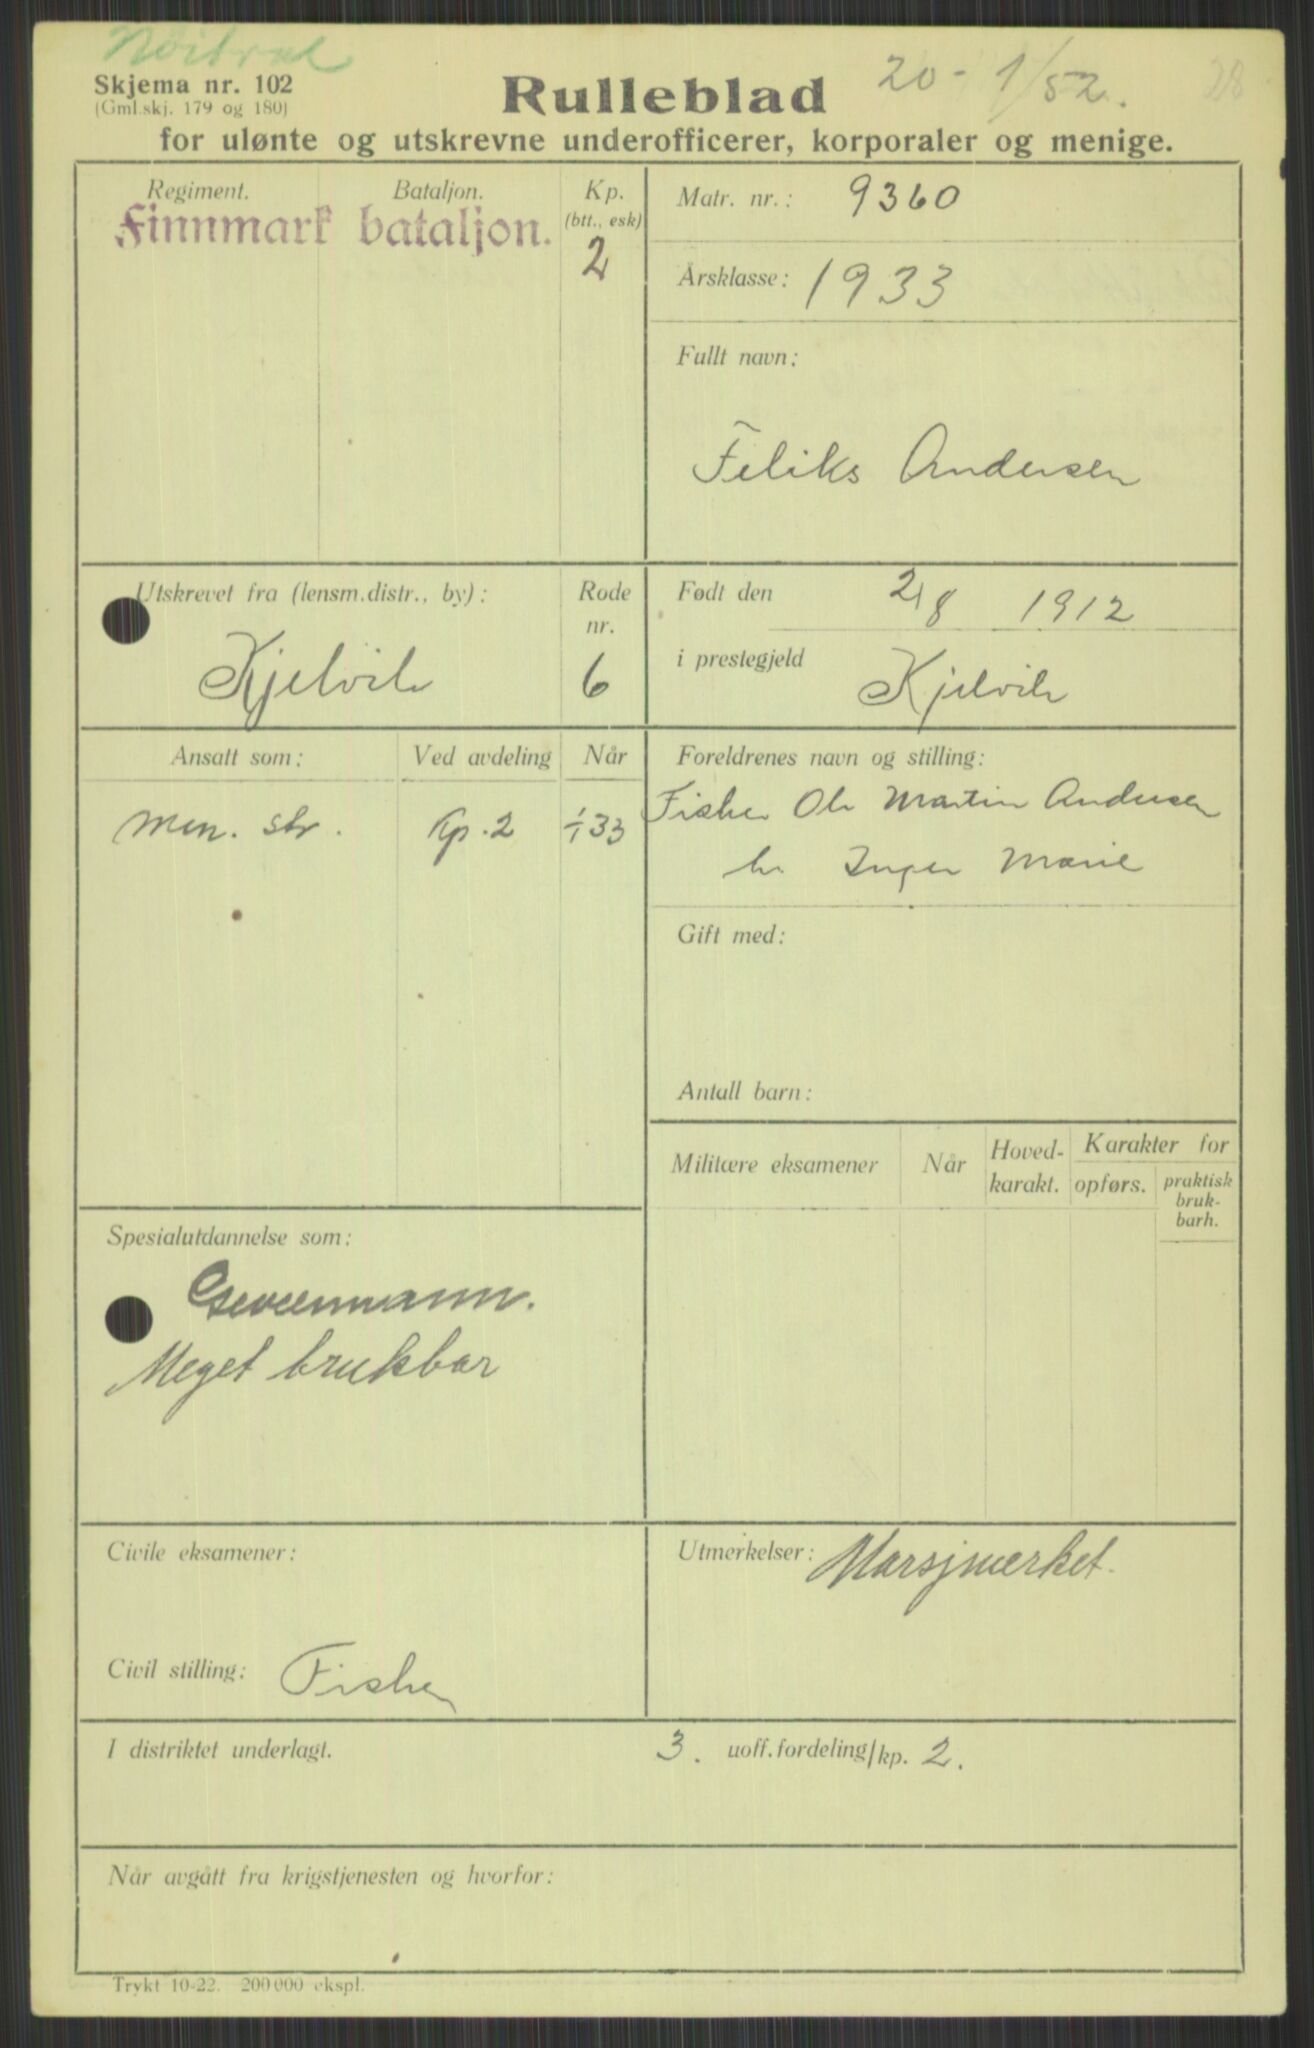 Skjema nr. 102
(Gml.skj. 179 og 180)
Rulleblad
20 - 1/52.
28
for ulønte og utskrevne underofficerer, korporaler og menige.
Regiment. Bataljon. Kp.
(btt., esk)
Finnmark bataljon.
2
Matr. nr.: 9360
Årsklasse: 1933
Fullt navn:
Feliks Andersen
Utskrevet fra (lensm.distr., by):
Kjelvik
Rode
nr.
6
Født den 2/8 1912
i prestegjeld Kjelvik
Ansatt som: Ved avdeling Når
Men. str. Kp. 2 1/1 33
Foreldrenes navn og stilling:
Fisker Ole Martin Andersen
h. Inger Marie
Gift med:
Antall barn:
Militære eksamener Når Hoved-
karakt. Karakter for
opførs. praktisk
bruk-
barh.
Spesialutdannelse som:
Geværmann.
Meget brukbar
Civile eksamener:
Utmerkelser: Marsjmerket.
Civil stilling: Fisker
I distriktet underlagt. 3. uoff.fordeling/kp. 2.
Når avgått fra krigstjenesten og hvorfor:
Trykt 10-22. 200 000 ekspl.